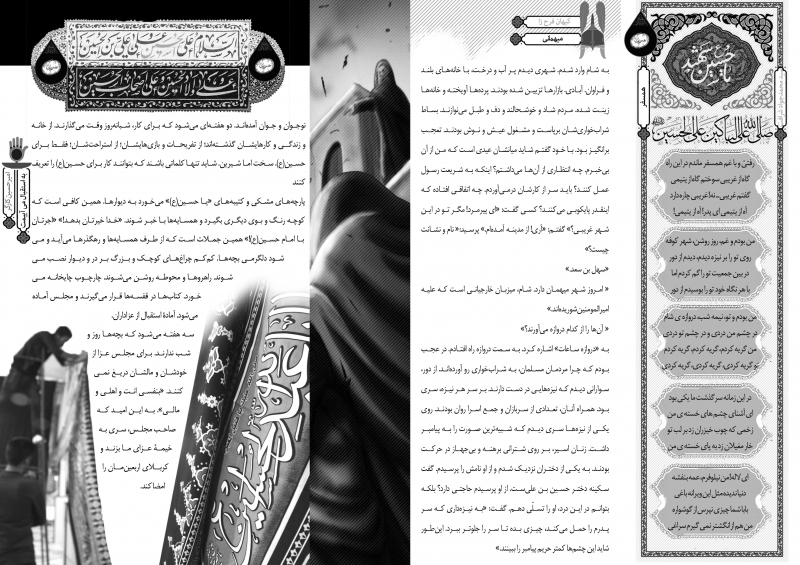 همسفر
صلی الله علی الباکین علی الحسین
رفتی و با غم همسفر ماندم در این راه
گاه از غریبی سوختم گاه از یتیمی
گفتم غریبی، نه! غریبی چاره دارد
آه از یتیمی ای پدر! آه از یتیمی!
من بودم و غم، روز روشن، شهر کوفه
روی تو را بر نیزه دیدم، دیدم از دور
در بین جمعیت تو را گم کردم اما
با هر نگاه خود تو را بوسیدم از دور
من بودم و تو، نیمه شب، دروازه ی شام
در چشم من دردی و در چشم تو دردی
من گریه کردم، گریه کردم، گریه کردم
تو گریه کردی، گریه کردی، گریه کردی
در این زمانه سرگذشت ما یکی بود
ای آشنای چشم های خسته ی من
زخمی که چوب خیزران زد بر لب تو
خار مغیلان زد به پای خسته ی من
ای لاله! من نیلوفرم، عمه بنفشه
دنیا ندیده مثل این ویرانه باغی
بابا شما چیزی نپرس از گوشواره
من هم از انگشتر نمی گیرم سراغی
کیهان فرج زا
میهمانی
به شام وارد شدم. شهری دیدم پر آب و درخت، با خانه‌های بلند
و فراوان. آبادی، بازارها تزیین شده بودند، پرده‌ها آویخته و خانه‌ها
زینت شده. مردم شاد و خوشحالند و دف و طبل می‌نوازند. بساط
شراب‌خواری‌شان برپاست و مشغول عیش و نوش بودند. تعجب
برانگیز بود. با خود گفتم شاید میانشان عیدی است که من از آن
بی‌خبرم. چه انتظاری از آن‌ها می‌داشتم؟ اینکه به شریعت رسول
عمل کنند؟ باید سر از کارشان درمی‌آوردم. چه اتفاقی افتاده که
اینقدر پایکوبی می‌کنند؟ کسی گفت: «ای پیرمرد! مگر تو در این
شهر غریبی؟» گفتم: «آری! از مدینه آمده‌ام.» پرسید: «نام و نشانت
چیست؟»
«سهل بن سعد.»
« امروز شهر میهمان دارد. شام، میزبان خارجیانی است که علیه
امیرالمومنین شوریده‌اند.»
« آن‌ها را از کدام دروازه می‌آورند؟»
به «دروازه ساعات» اشاره کرد. به سمت دروازه راه افتادم. در عجب
بودم که چرا مردمان مسلمان، به شراب‌خواری رو آورده‌اند. از دور،
سوارانی دیدم که نیزه‌هایی در دست دارند. بر سر هر نیزه، سری
بود. همراه آنان، تعدادی از سربازان و جمع اسرا روان بودند. روی
یکی از نیزه‌ها سری دیدم که شبیه‌ترین صورت را به پیامبر
داشت. زنان اسیر، بر روی شترانی برهنه و بی‌جهاز در حرکت
بودند. به یکی از دختران نزدیک شدم و از او نامش را پرسیدم. گفت
سکینه دختر حسین بن علی‌ست. از او پرسیدم حاجتی دارد؟ بلکه
بتوانم در این درد، او را تسلّی دهم. گفت: «به نیزه‌داری که سر
پدرم را حمل می‌کند، چیزی بده تا سر را جلوتر ببرد. این‌طور
شاید این چشم‌ها کمتر حریم پیامبر را ببینند.»
السلام علی الحسین و علی علی بن الحسین
و علی اولاد الحسین و علی اصحاب الحسین
امیرحسین کارگر
به استقبال می آییمت
نوجوان و جوان آمده‌اند. دو هفته‌ای می‌شود که برای کار، شبانه‌روز وقت می‌گذارند. از خانه
و زندگی و کارهایشان گذشته‌اند؛ از تفریحات و بازی‌هایشان؛ از استراحت‌شان؛ فقط برای
حسین(ع). سخت اما شیرین. شاید تنها کلماتی باشند که بتوانند کار برای حسین(ع) را تعریف
کنند
پارچه‌های مشکی و کتیبه‌های «یا حسین(ع)» می‌خورد به دیوارها. همین کافی است که
کوچه رنگ و بوی دیگری بگیرد و همسایه‌ها با خبر شوند. «خدا خیرتان بدهد!» «اجرتان
با امام حسین(ع)!» همین جملات است که از طرف همسایه‌ها و رهگذرها می‌آید و می
شود دلگرمی بچه‌ها. کم‌کم چراغ‌های کوچک و بزرگ بر در و دیوار نصب می
شوند. راهروها و محوطه روشن می‌شوند. چارچوب چایخانه می
خورد. کتاب‌ها در قفسه‌ها قرار می‌گیرند و مجلس آماده
می‌شود. آمادهٔ استقبال از عزاداران.
سه هفته می‌شود که بچه‌ها روز و
شب ندارند. برای مجلس عزا از
خودشان و مالشان دریغ نمی
کنند. «بنفسی انت و اهلی و
مالی». به این امید که
صاحب مجلس، سری به
خیمهٔ عزای ما بزند و
کربلای اربعین‌مان را
امضا کند.